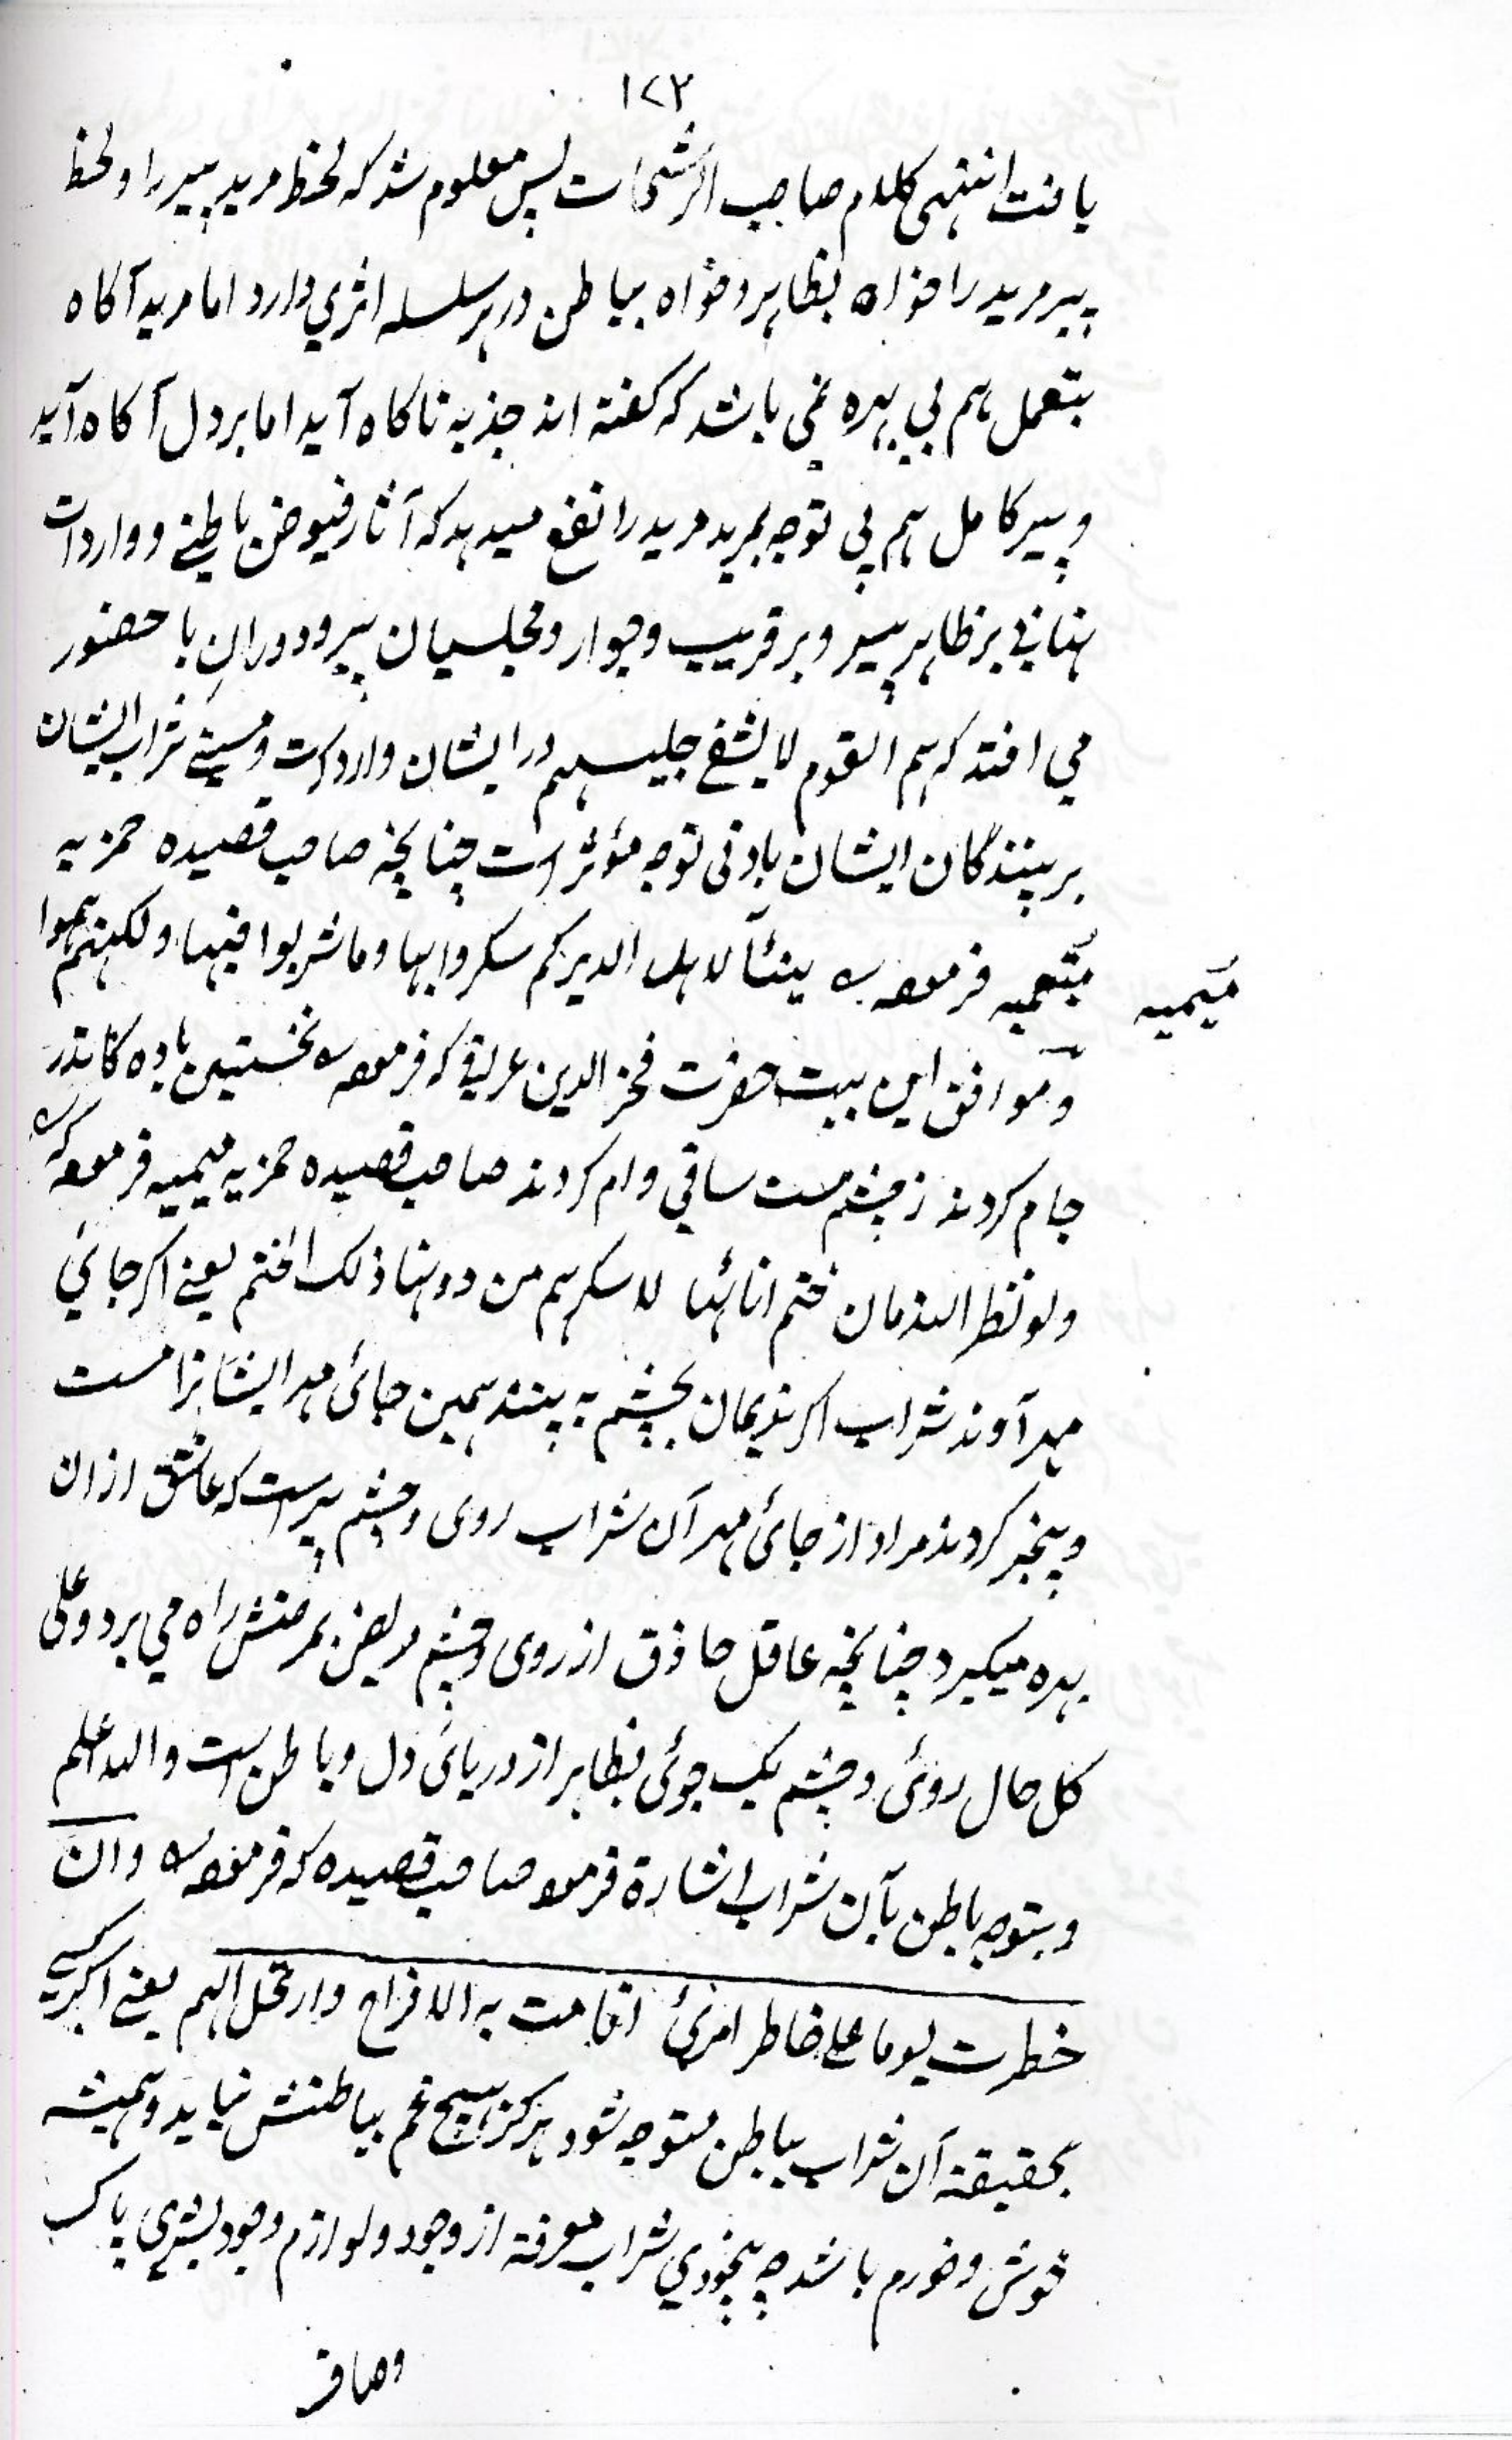 ۱۷۲
یافت انتهی کلام صاحب الرشحات پس معلوم شد که لحظ مرید پیر را و لحظ
پیر مرید را خواه بظاهر و خواه بباطن در هر سلسله اثری دارد اما مرید آکاه
بتعمل هم بی بهره نمی باشد که کفته اند جذبه ناکاه آید اما بر دل آکاه آید
و پیر کامل هم بی توجه بمرید مرید را نفع میدهد که آثار فیوض باطنی و واردات
نهانی بر ظاهر پیر و بر قریب و جوار و مجلسیان پیر و دوران با حضور
می افتد که هم القوم لا یشقی جلیسهم در ایشان وارد است و مستی شراب ایشان
بر بینندگان ایشان بادنی توجه مؤثر است چنانچه صاحب قصیده خمریه
میمیه
فرموده هنیئاً لاهل الدیر کم سکروا بها و ما شربوا منها ولکنهم هموا
و موافق این بیت حضرت فخر الدین عراقی که فرموده نخستین باده کاندر
جام کردند ز چشم مست ساقی وام کردند صاحب قصیده خمریه میمیه فرموده که
ولو نظر الندمان ختم انائها لاسکرهم من دونها ذلک الختم یعنی اکر جائی
مهر آوند شراب اکر ندیمان بچشم به بینند همین جائی مهر ایشانرا مست
و بیخبر کردند مراد از جائی مهر آن شراب روی و چشم پیر است که عاشق از ان
بهره میکیرد چنانچه عاقل حاذق از روی و چشم مریض بمرضش راه می برد و علی
کل حال روئی و چشم یک جوئی بظاهر از دریائی دل و باطن است والله اعلم
و بتوجه باطن بآن شراب اشارة فرمود صاحب قصیده که فرموده وان
خطرت یوما علی خاطر امرئ اقامت به الافراح وارتحل الهم یعنی اکر کسی
بحقیقة آن شراب بباطن متوجه شود هرکز هیچ غم بباطنش نیاید و همیشه
خوش و خورم باشد چه بیخودی شراب معرفة از وجود و لوازم وجود بشری پاک
وصاف